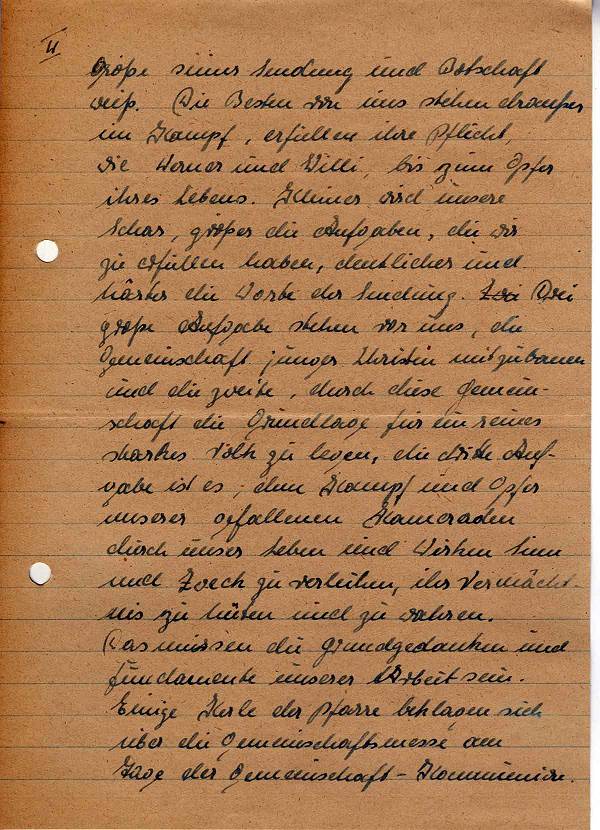 II
Größe seiner Sendung und Botschaft
weiß. Die Besten von uns stehen draußen
im Kampf, erfüllen ihre Pflicht,
wie Werner und Willi, bis zum Opfer
ihres Lebens. Kleiner wird unsere
Schar, größer die Aufgaben, die wir
zu erfüllen haben, deutlicher und
härter die Worte der Sendung. Zwei Drei
große Aufgabe stehen vor uns, die
Gemeinschaft junger Christen mitzubauen
und die zweite, durch diese Gemein-
schaft die Grundlage für ein reines
starkes Volk zu legen, die dritte Auf-
gabe ist es, dem Kampf und Opfer
unserer gefallenen Kameraden
durch unser Leben und Wirken Sinn
und Zweck zu verleihen, ihr Vermächt-
nis zu hüten und zu wahren.
Das müssen die Grundgedanken und
Fundamente unserer Arbeit sein.
Einige Kerle der Pfarre beklagen sich
über die Gemeinschaftsmesse am
Tage der Gemeinschaft-Kommunion.